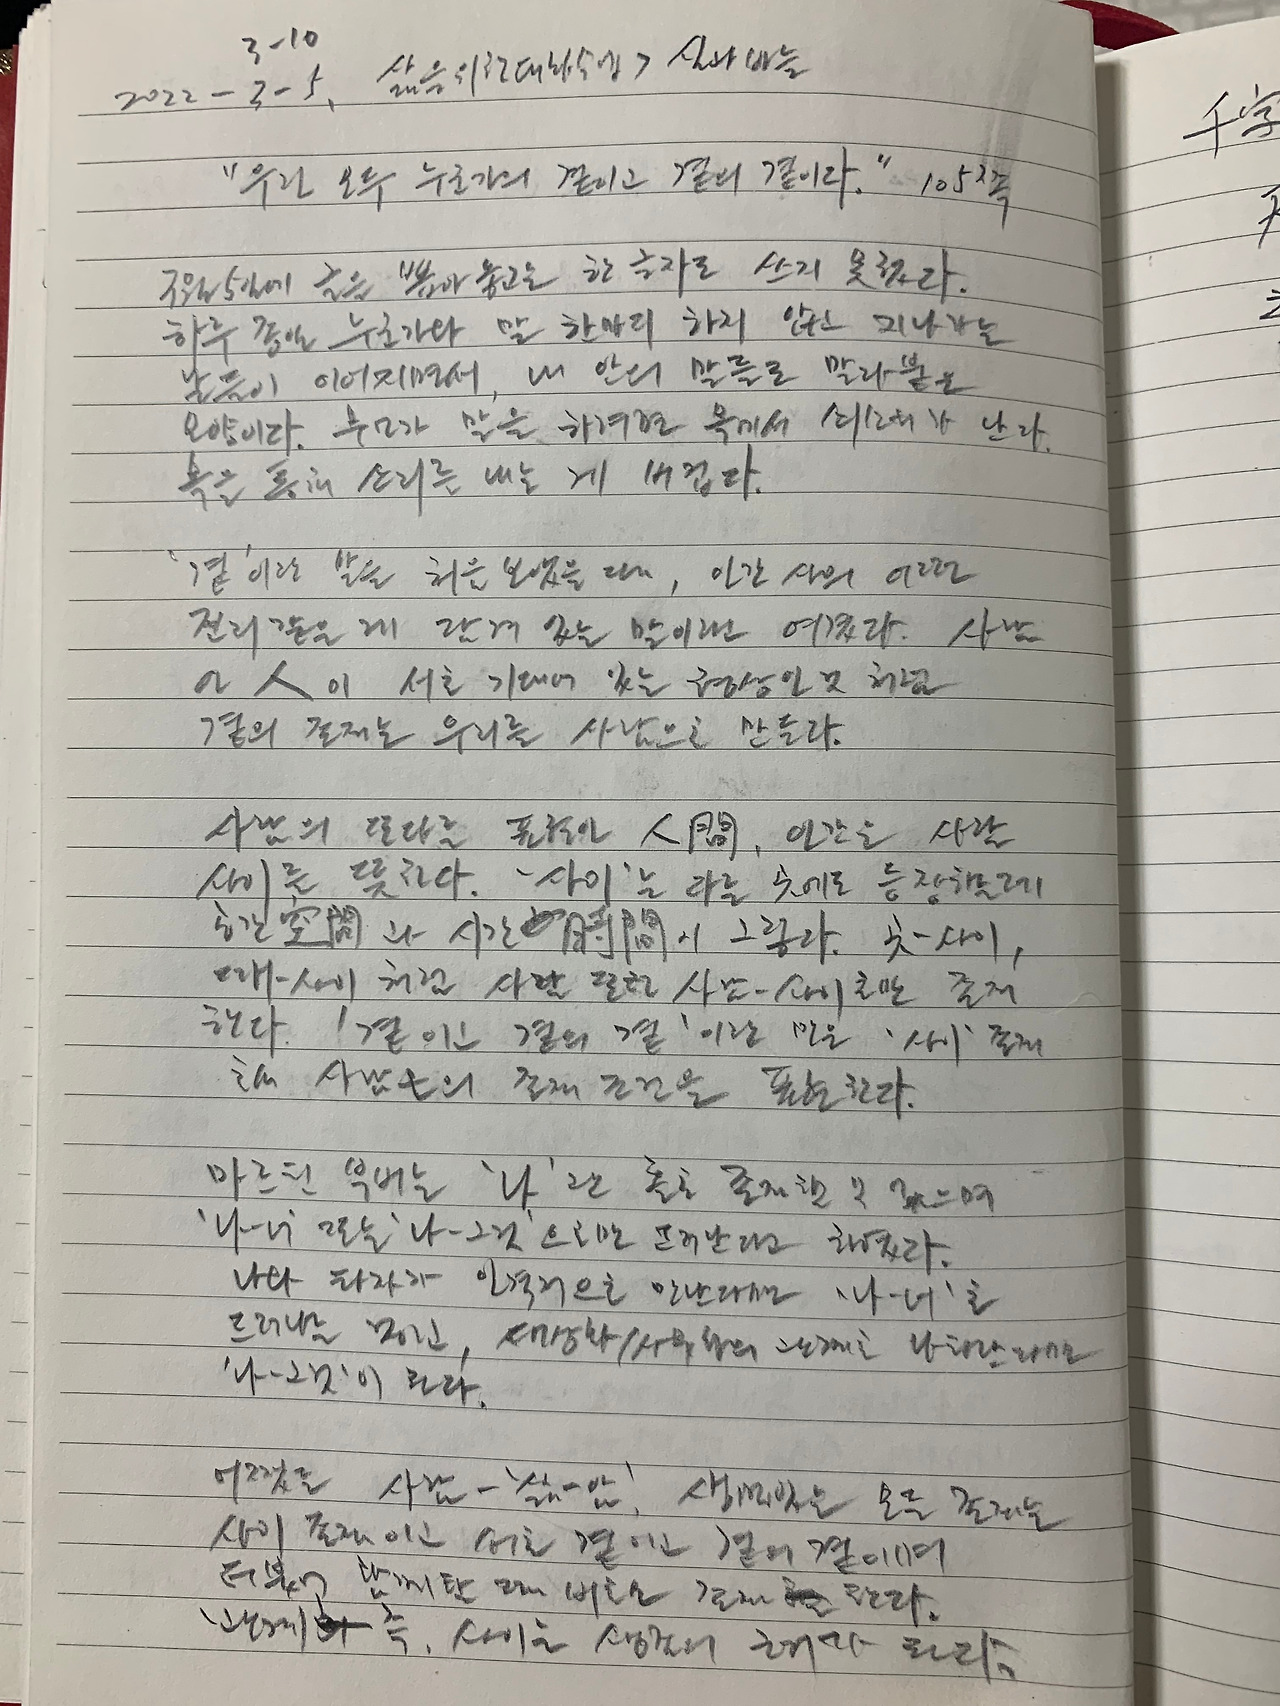 3-10
2022-3-5, 삶을위한대학수업> 실과바늘
"우린 모두 누군가의 곁이고 곁의 곁이다." 105쪽
3월5일에 글을 뽑아놓고는 한 글자도 쓰지 못했다.
하루 종일 누군가와 말 한마디 하지 않고 지나가는
날들이 이어지면서, 내 안의 말들도 말라붙은
모양이다. 말을 하려면 목에서 쇳소리가 난다.
목을 통해 소리를 내는 게 버겁다.
'곁'이란 말을 처음 보았을 때, 인간 사의 어떤
진리 같은 게 담겨 있는 말이라 여겼다. 사람
人이 서로 기대어 있는 형상인 것 처럼
곁의 존재는 우리를 사람으로 만든다.
사람의 또다른 표현인 人間, 인간은 사람
사이를 뜻한다. '사이'는 다른 곳에도 등장하는데
공간空間과 시간時間이 그렇다. 곳-사이,
때-사이 처럼 사람 또한 사람-사이로만 존재
한다. '곁이고 곁의 곁'이란 말은 '사이' 존재
로써 사람의 존재 조건을 표현한다.
마르틴 부버는 '나'란 홀로 존재할 수 없으며
'나-너' 또는 '나-그것'으로만 드러난다고 하였다.
나와 타자가 인격적으로 만난다면 '나-너'로
드러나는 것이고, 대상화/사물화의 관계로 나타난다면
'나-그것'이 된다.
어쨌든 사람-'삶-앎', 생명있는 모든 존재는
사이 존재이고 서로 곁이고 곁의 곁이며
더불어 함께할 때 비로소 존재 된다.
'관계 즉, 사이는 생존의 근거가 된다.
千字